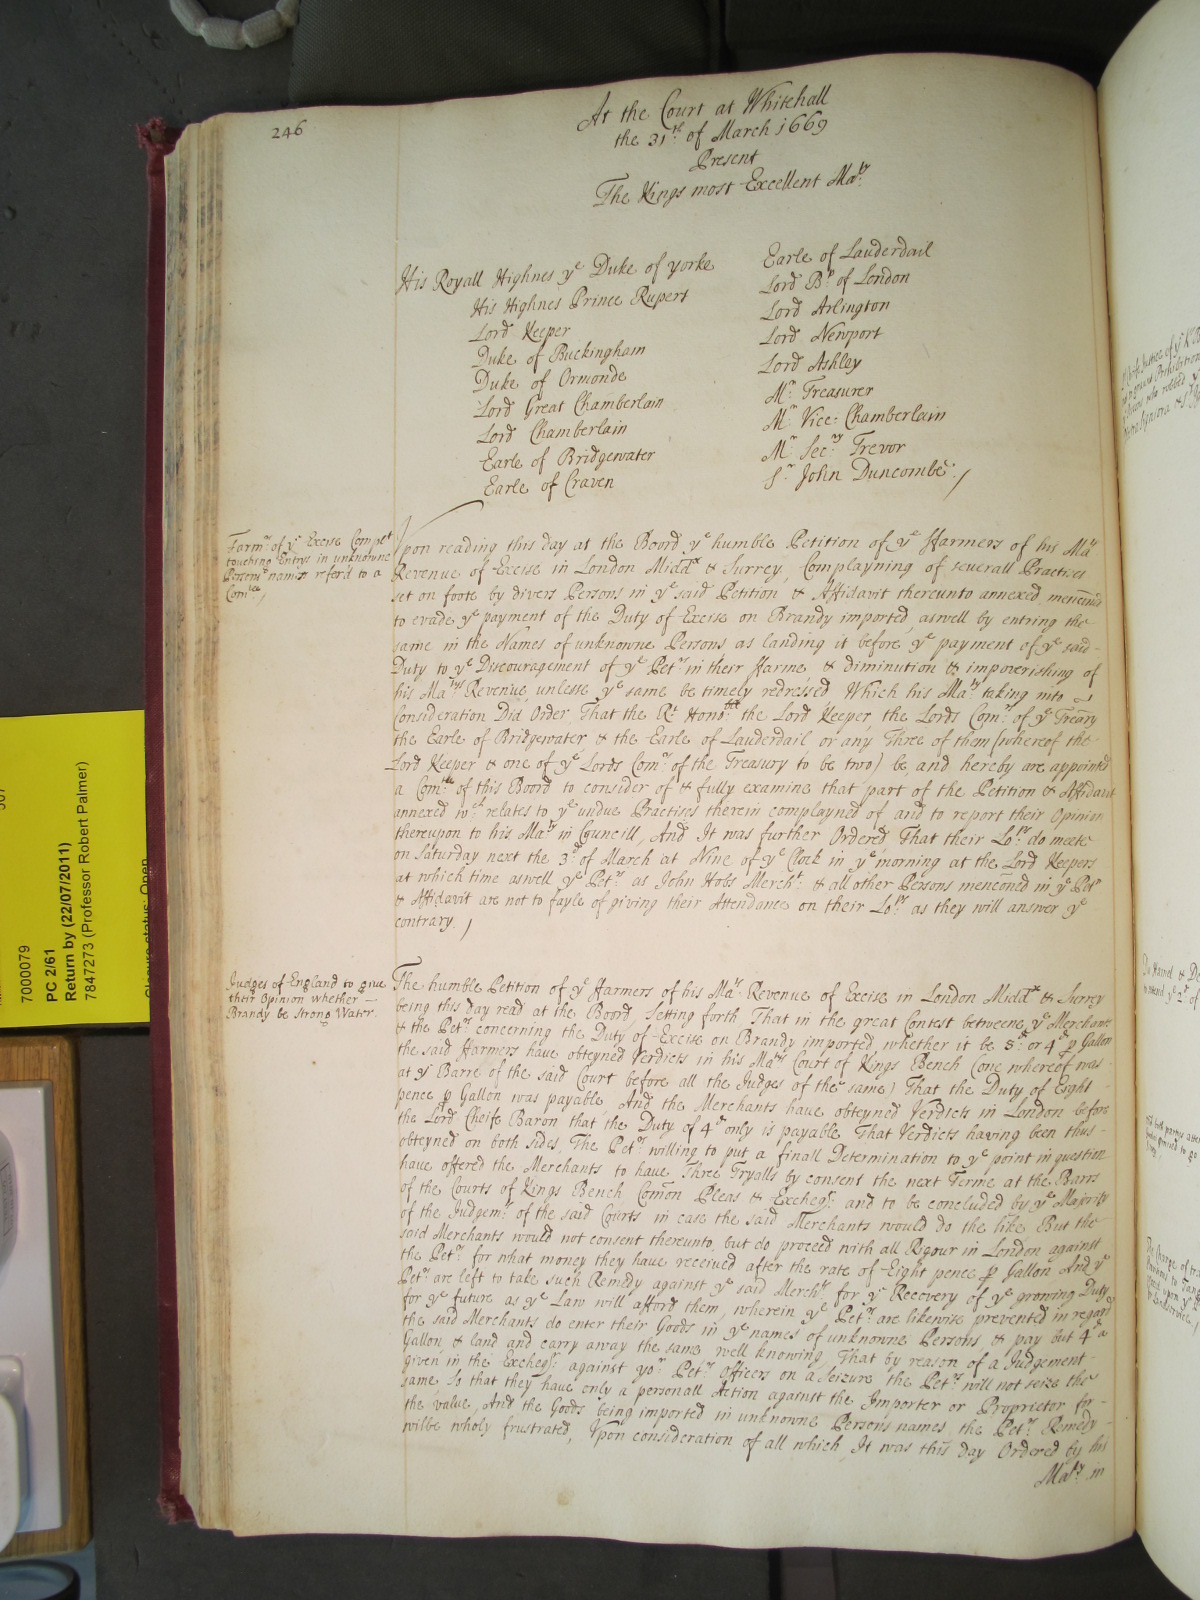 246
At the Court at Whitehall
the 31th of March 1669
Present
The Kings most Excellent Maty:
His Royall Highnes ye Duke of yorke
His Highnes Prince Rupert
Lord Keeper
Duke of Buckingham
Duke of Ormonde
Lord Great Chamberlain
Lord Chamberlain
Earle of Bridgewater
Earle of Craven
Earle of Lauderdail
Lord Bp of London
Lord Arlington
Lord Newport
Lord Ashley
Mr Treasurer
Mr Vice: Chamberlain
Mr Secry Trevor
Sr John Duncombe:/
Farmrs of ye Excise Complt
touching Entrys in unknowne
Persons names referd to a
Comtee/
Vpon reading this day at the Boord ye humble Petition of ye Farmers of his Mats
Revenue of Excise in London Middx & Surrey, Complayning of seuerall Practises
set on foote by divers Persons in ye said Petition & Affidavit thereunto annexed mencond
to evade ye payment of the Duty of Excise on Brandy imported, aswell by entring the
same in the Names of unknowne Persons as landing it before ye payment of ye said
Duty to ye Discouragement of ye Petrs in their Farme & diminution & impoverishing of
his Matys Revenue, unlesse ye same be timely redressed, Which his Maty taking into
Consideration Did Order, That the Rt Honoble: the Lord Keeper, the Lords Comrs of ye Treary
the Earle of Bridgewater & the Earle of Lauderdail, or any Three of them (whereof the
Lord Keeper & one of ye Lords Comrs of the Treasury to be two) be, and hereby are appointed
a Comtee of this Board to consider of & fully examine that part of the Petition & Affidavit
annexed wch relates to ye undue Practises therein complayned of and to report their Opinion
thereupon to his Maty in Councill, And It was further Ordered That their Lops do meete
on Saturday next the 3d of March at Nine of ye Clock in ye morning at the Lord Keepers
at which time aswell ye Petrs as John Hobs Mercht: & all other Persons menconed in ye Petn
& Affidavit are not to fayle of giving their Attendance on their Lops as they will answer ye
contrary./
Judges of England to giue
their Opinion whether —
Brandy be strong Water.
The humble Petition of ye Farmers of his Mats Revenue of Excise in London Middx & Surrey
being this day read at the Boord Setting forth That in the great Contest betweene ye Merchants
& the Petrs concerning the Duty of Excise on Brandy imported whether it be 8d: or 4d p Gallon
the said Farmers have obteyned Verdicts in his Matys Court of Kings Bench (one whereof was
at ye Barre of the said Court before all the Judges of the same) That the Duty of Eight
pence p Gallon was payable, And the Merchants haue obteyned Verdicts in London before
the Lord Cheife Baron that the Duty of 4d only is payable, That Verdicts having been thus
obteyned on both sides, The Petrs willing to put a finall Determination to ye point in question
have offered the Merchants to have Three Tryalls by consent the next Terme at the Barrs
of the Courts of Kings Bench Comon Pleas & Excheqr: and to be concluded by ye Majority
of the Judgemts of the said Courts in case the said Merchants would do the like But the
said Merchants would not consent thereunto, but do proceed with all Rigour in London against
the Petrs for what money they have received after the rate of Eight pence p Gallon And ye
Petrs are left to take such Remedy against ye said Merchts for ye Recovery of ye growing Duty
for ye future as ye Law will afford them, wherein ye Petrs are likewise prevented in regard
the said Merchants do enter their Goods in ye names of unknowne Persons, & pay but 4d a
Gallon, & land and carry away the same well knowing, That by reason of a Judgement
given in the Excheqr: against yor Petrs Officers on a Seizure the Petrs will not seize the
same, So that they have only a personall Action against the Importer or Proprietor for
the value, And the Goods being imported in unknowne Persons names, the Petrs Remedy
wilbe wholy frustrated, Vpon consideration of all which, It was this day Ordered by his
Maty in
7000079
PC 2/61
Return by (22/07/2011)
7847273 (Professor Robert Palmer)
Closure status: Open